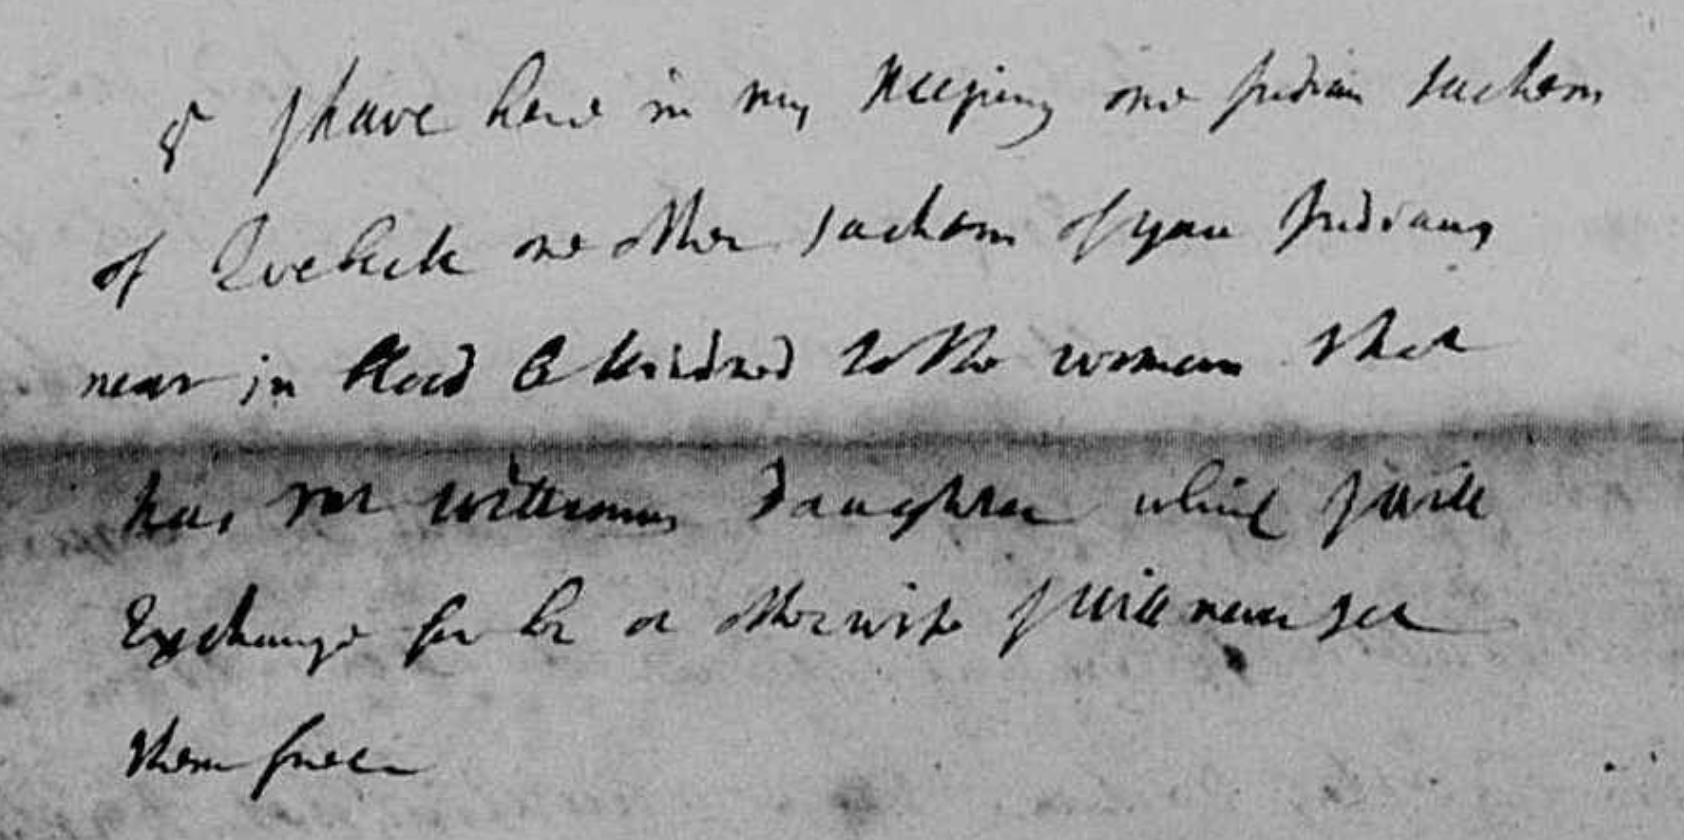 & I have here in my Keeping one Indian Sachem
of Quebeck one other Sachem of your Indians
near in blood & kindred to the woman that
has mr williams Daughter which I will
Exchange for her or otherwise I will never set
them free